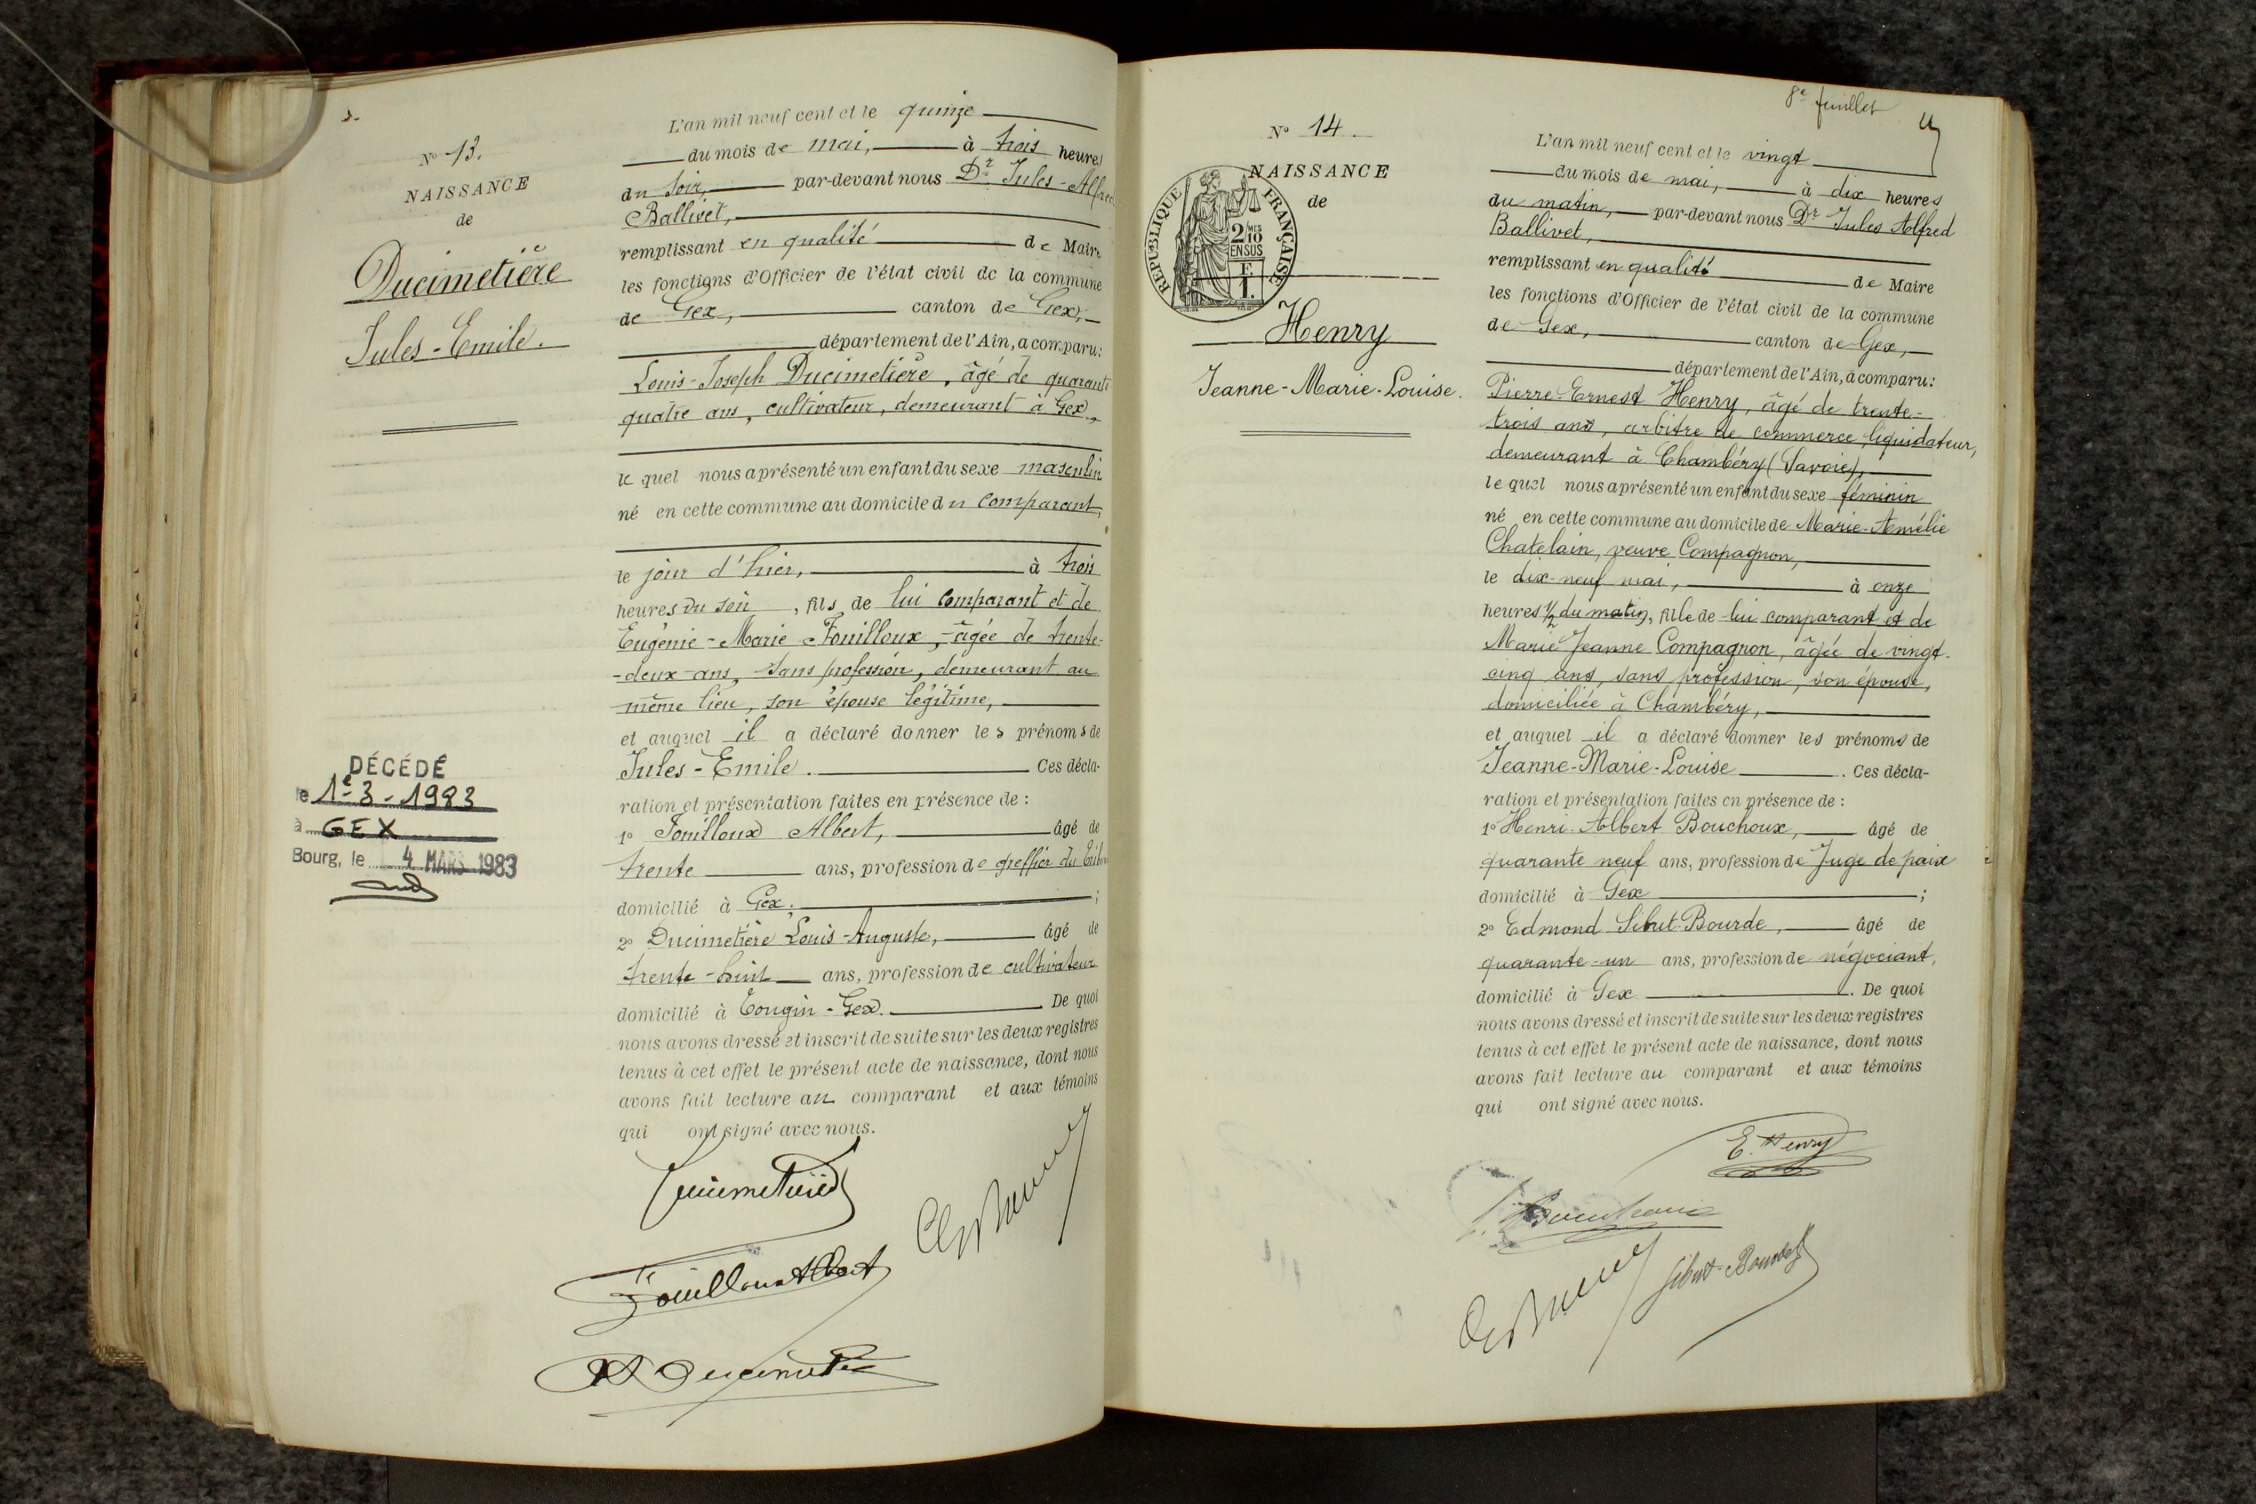 Nº 13.
NAISSANCE
de
Ducimetière
Jules-Emile.
DÉCÉDÉ
le 1e-3-1983
à GEX
Bourg, le 4 MARS 1983
L'an mil neuf cent et le quinze
du mois de mai, à trois heures
du soir, par-devant nous Dr Jules-Alfred
Ballivet,
remplissant en qualité de Maire
les fonctions d'Officier de l'état civil de la commune
de Gex, canton de Gex,
département de l'Ain, a comparu:
Louis-Joseph Ducimetière, âgé de quarante
quatre ans, cultivateur, demeurant à Gex,
lequel nous a présenté un enfant du sexe masculin
né en cette commune au domicile du comparant,
le jour d'hier, à trois
heures du soir, fils de lui comparant et de
Eugénie-Marie Fouilloux, âgée de trente-
-deux-ans, sans profession, demeurant au
même lieu, son épouse légitime,
et auquel il a déclaré donner les prénoms de
Jules-Emile. Ces décla-
ration et présentation faites en présence de :
1º Fouilloux Albert, âgé de
trente ans, profession de greffier du
domicilié à Gex ;
2º Ducimetière Louis-Auguste, âgé de
trente-huit ans, profession de cultivateur
domicilié à Tougin-Gex. De quoi
nous avons dressé et inscrit de suite sur les deux registres
tenus à cet effet le présent acte de naissance, dont nous
avons fait lecture au comparant et aux témoins
qui ont signé avec nous.
Ducimetière
Fouilloux Albert
8e feuillet
Nº 14.
NAISSANCE
de
REPUBLIQUE FRANÇAISE
2/10 MES
EN SUS
F.
1.
Henry
Jeanne-Marie-Louise.
L'an mil neuf cent et le vingt
du mois de mai, à dix heures
du matin, par-devant nous Dr Jules Alfred
Ballivet,
remplissant en qualité de Maire
les fonctions d'Officier de l'état civil de la commune
de Gex, canton de Gex,
département de l'Ain, a comparu:
Pierre-Ernest Henry, âgé de trente-
trois ans, arbitre de commerce liquidateur,
demeurant à Chambéry (Savoie),
lequel nous a présenté un enfant du sexe féminin
né en cette commune au domicile de Marie-Amélie
Chatelain, veuve Compagnon,
le dix-neuf mai, à onze
heures 1/2 du matin, fille de lui comparant et de
Marie Jeanne Compagnon, âgée de vingt-
cinq ans, sans profession, son épouse,
domiciliée à Chambéry,
et auquel il a déclaré donner les prénoms de
Jeanne-Marie-Louise. Ces décla-
ration et présentation faites en présence de :
1º Henri-Albert Bouchoux, âgé de
quarante neuf ans, profession de Juge de paix
domicilié à Gex ;
2º Edmond Sibut-Bourde, âgé de
quarante-un ans, profession de négociant,
domicilié à Gex. De quoi
nous avons dressé et inscrit de suite sur les deux registres
tenus à cet effet le présent acte de naissance, dont nous
avons fait lecture au comparant et aux témoins
qui ont signé avec nous.
E. Henry
Sibut-Bourde